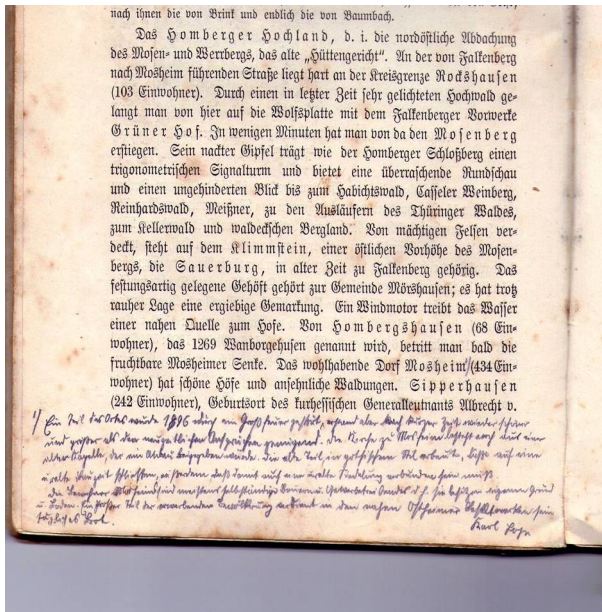 nach ihnen die von Brink und endlich die von Baumbach.
Das Homberger Hochland, d. i. die nordöstliche Abdachung
des Mosen- und Werrbergs, das alte „Hüttengericht“. An der von Falkenberg
nach Mosheim führenden Straße liegt hart an der Kreisgrenze Rockshausen
(103 Einwohner). Durch einen in letzter Zeit sehr gelichteten Hochwald ge-
langt man von hier auf die Wolfsplatte mit dem Falkenberger Vorwerke
Grüner Hof. In wenigen Minuten hat man von da den Mosenberg
erstiegen. Sein nackter Gipfel trägt wie der Homberger Schloßberg einen
trigonometrischen Signalturm und bietet eine überraschende Rundschau
und einen ungehinderten Blick bis zum Habichtswald, Casseler Weinberg,
Reinhardswald, Meißner, zu den Ausläufern des Thüringer Waldes,
zum Kellerwald und waldeckschen Bergland. Von mächtigen Felsen ver-
deckt, steht auf dem Klimmstein, einer östlichen Vorhöhe des Mosen-
bergs, die Sauerburg, in alter Zeit zu Falkenberg gehörig. Das
festungsartig gelegene Gehöft gehört zur Gemeinde Mörshausen; es hat trotz
rauher Lage eine ergiebige Gemarkung. Ein Windmotor treibt das Wasser
einer nahen Quelle zum Hofe. Von Hombergshausen (68 Ein-
wohner), das 1269 Wanborgehusen genannt wird, betritt man bald die
fruchtbare Mosheimer Senke. Das wohlhabende Dorf Mosheim¹⁾ (434 Ein-
wohner) hat schöne Höfe und ansehnliche Waldungen. Sipperhausen
(242 Einwohner), Geburtsort des kurhessischen Generalleutnants Albrecht v.
¹⁾ Ein Teil des Ortes wurde 1896 durch ein Großfeuer zerstört, erstand aber nach kurzer Zeit wieder schöner
und größer als den neuzeitlichen Ansprüchen genügend. Die Kirche zu Mosheim besteht aus einer
alten Kapelle, der ein Anbau beigegeben wurde. Der alte Teil, im gotischen Stil erbaut, läßt auf eine
uralte
Die Bewohner Mosheims sind meistens selbständige Bauern u. d.h. sie besitzen eigenen Grund
u. Boden. Ein großer Teil der Bevölkerung verdient in den nahen Ostheimer sein
tägliches Brot.
Karl